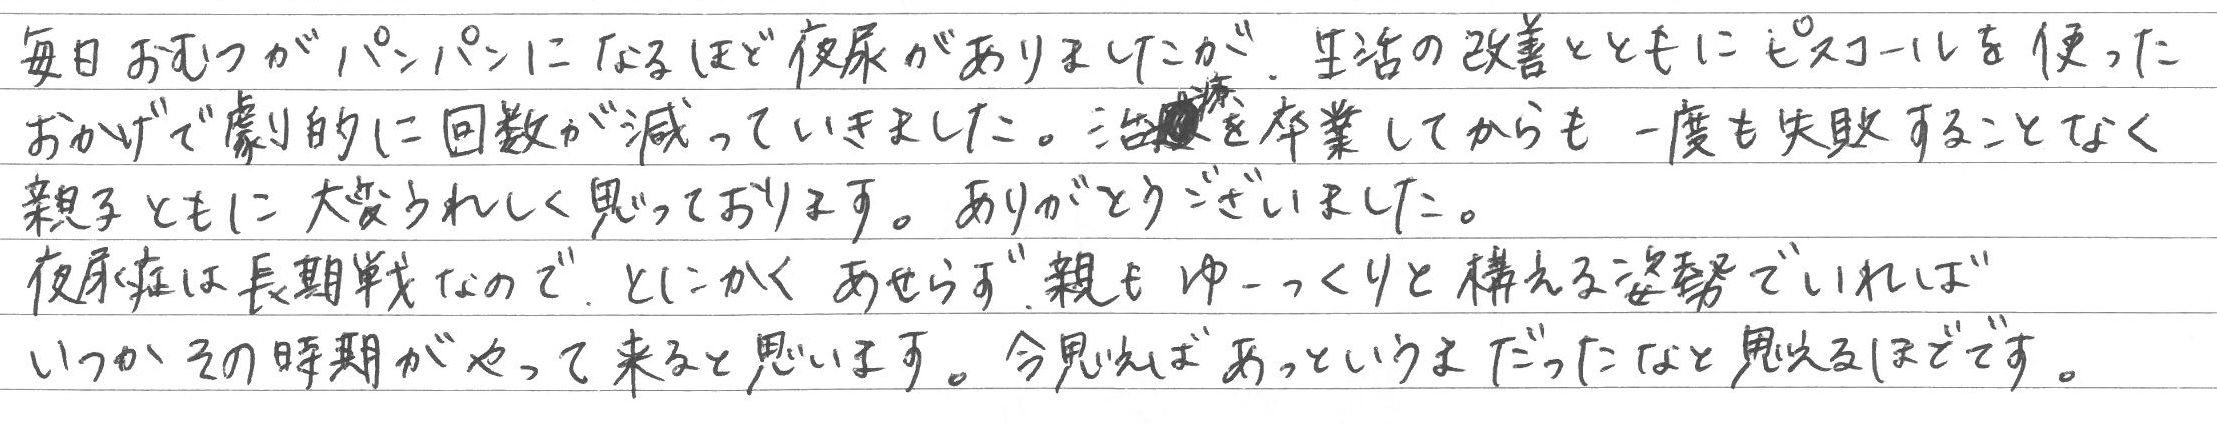 毎日おむつがパンパンになるほど夜尿がありましたが、生活の改善とともにピスコールを使った
おかげで劇的に回数が減っていきました。治療を卒業してからも一度も失敗することなく
親子ともに大変うれしく思っております。ありがとうございました。
夜尿症は長期戦なので、とにかくあせらず、親もゆーっくりと構える姿勢でいれば
いつかその時期がやって来ると思います。今思えばあっというまだったなと思えるほどです。